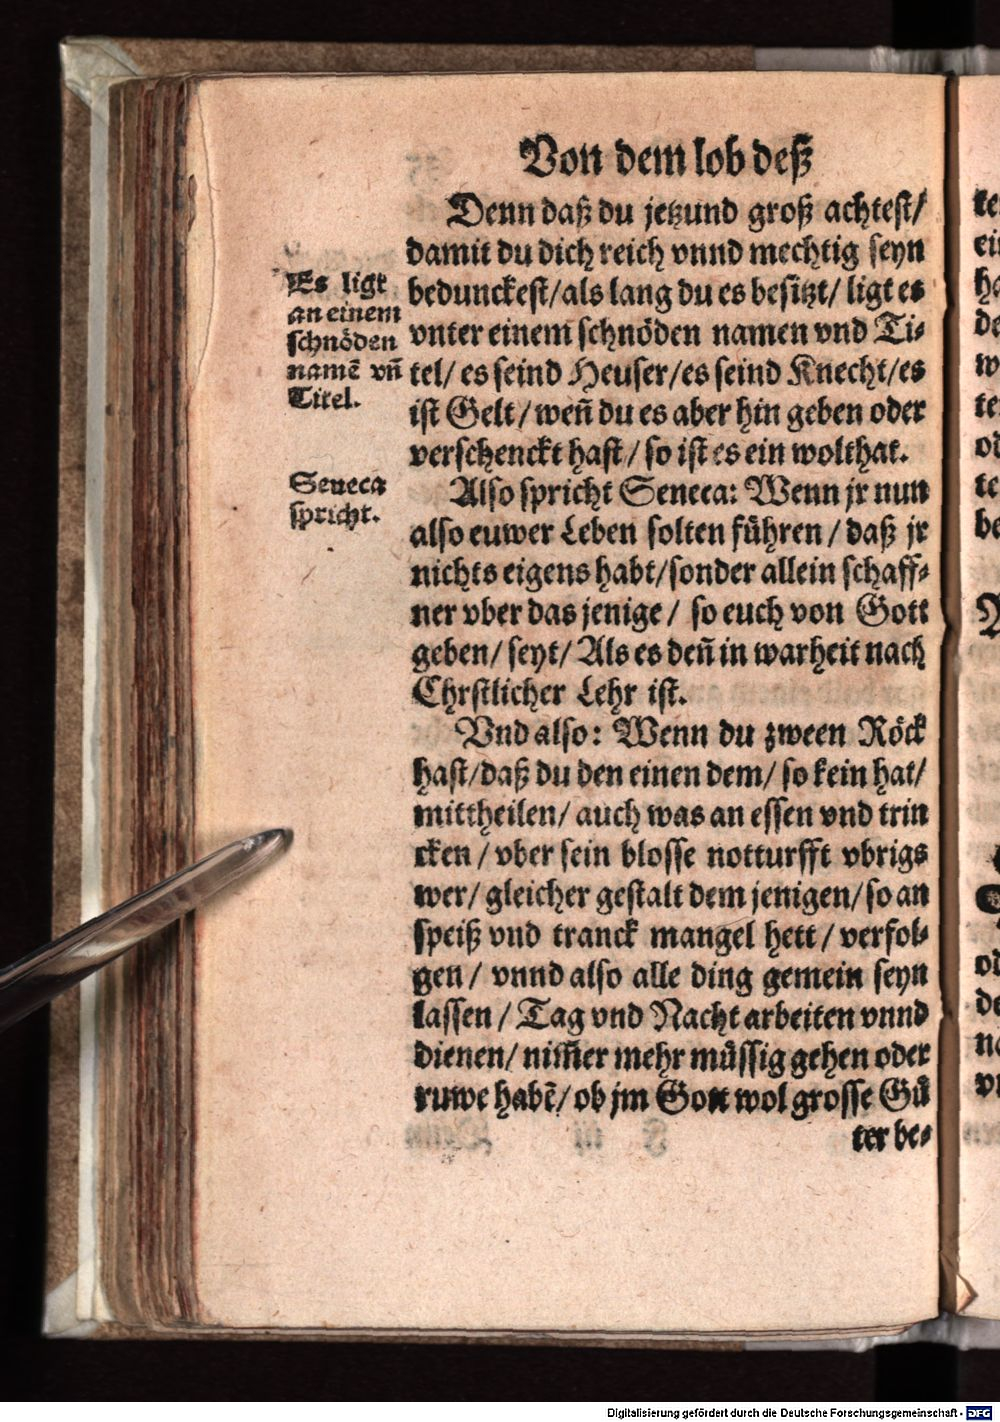 Von dem lob deß
Denn daß du jetzund groß achtest/
damit du dich reich vnnd mechtig seyn
bedunckest/ als lang du es besitzt/ ligt es
vnter einem schnöden namen vnd Ti-
tel/ es seind Heuser/ es seind Knecht/ es
ist Gelt/ weñ du es aber hin geben oder
verschenckt hast/ so ist es ein wolthat.
Es ligt
an einem
schnöden
namẽ vñ
Titel.
Also spricht Seneca: Wenn jr nun
also euwer Leben solten führen/ daß jr
nichts eigens habt/ sonder allein schaff-
ner vber das jenige/ so euch von Gott
geben/ seyt/ Als es deñ in warheit nach
Chrstlicher Lehr ist.
Seneca
spricht.
Vnd also: Wenn du zween Röck
hast/ daß du den einen dem/ so kein hat/
mittheilen/ auch was an essen vnd trin
cken/ vber sein blosse notturfft vbrigs
wer/ gleicher gestalt dem jenigen/ so an
speiß vnd tranck mangel hett/ verfol-
gen/ vnnd also alle ding gemein seyn
lassen/ Tag vnd Nacht arbeiten vnnd
dienen/ nim̃er mehr müssig gehen oder
ruwe habẽ/ ob jm Gott wol grosse Gü
ter be-
Digitalisierung gefördert durch die Deutsche Forschungsgemeinschaft - DFG